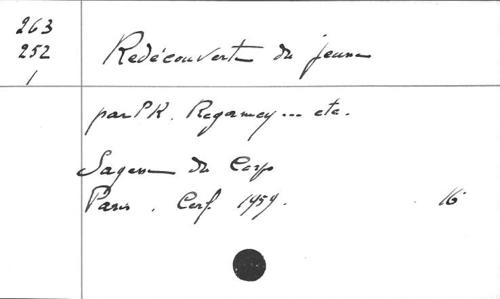 263
252
1
Redécouverte du jeune
par P R. Regamey ... etc.
Sagesse du Corps
Paris . Cerf. 1959.
16